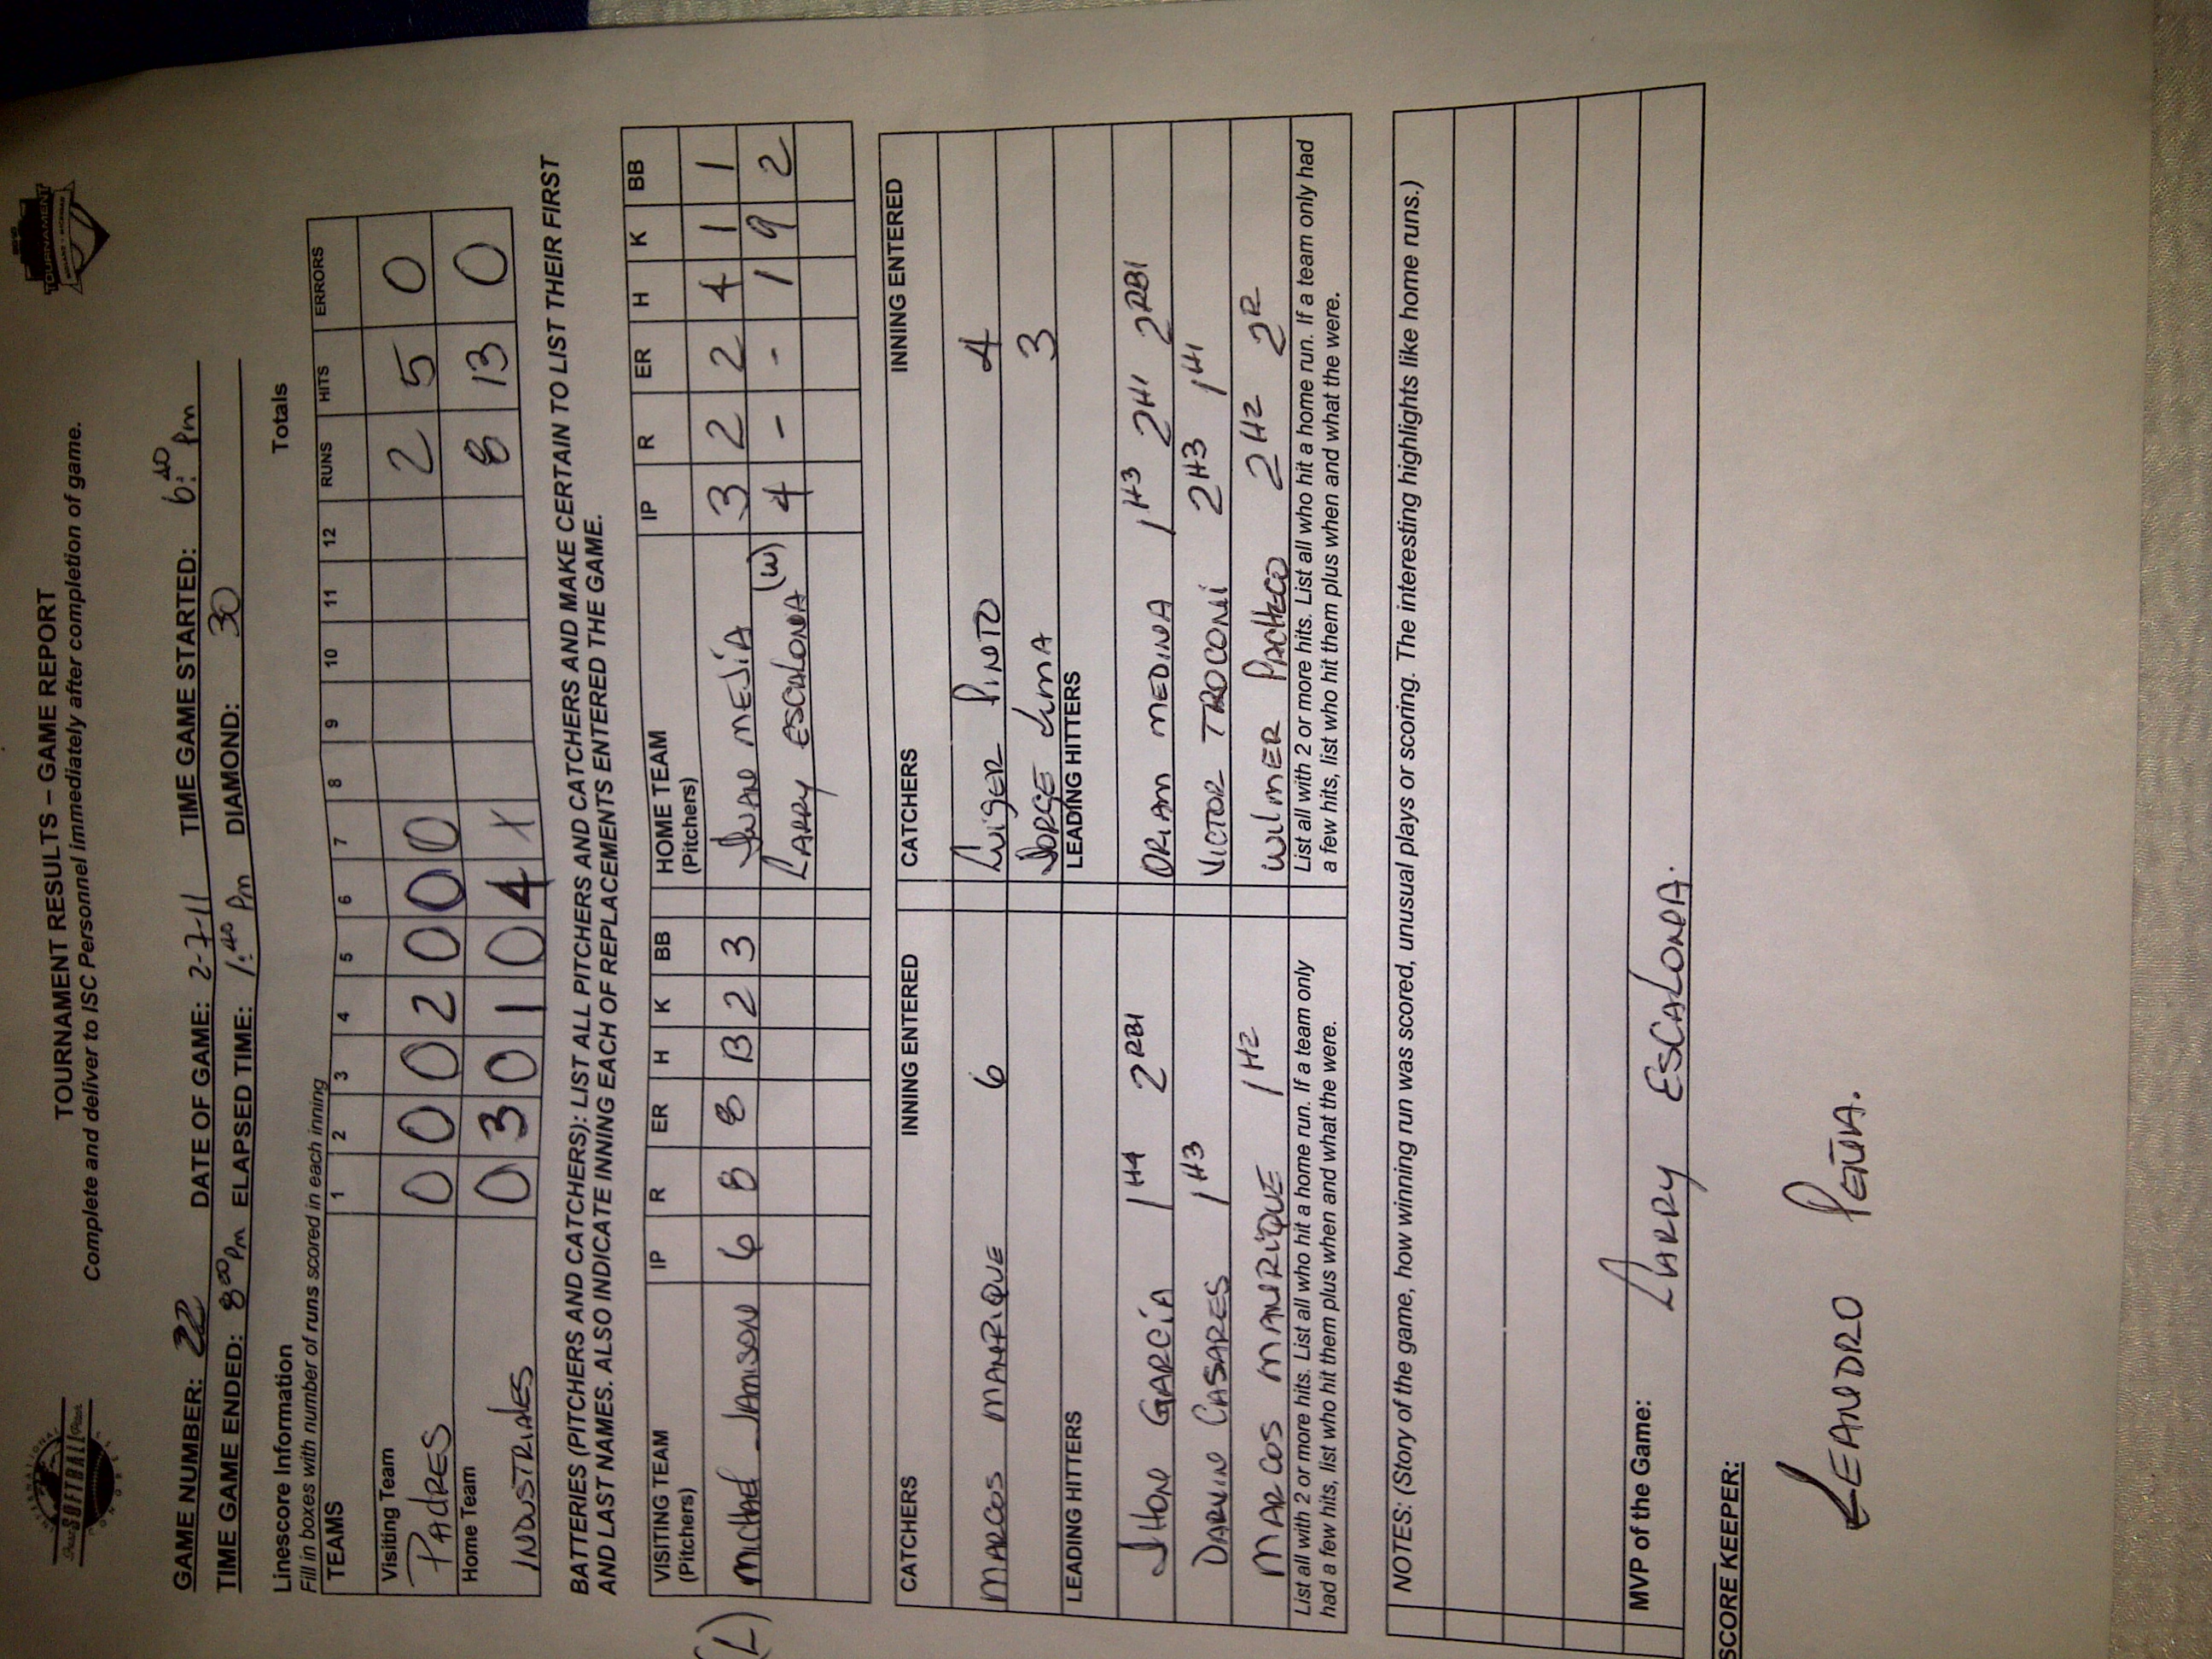 TOURNAMENT RESULTS – GAME REPORT
Complete and deliver to ISC Personnel immediately after completion of game.
INTERNATIONAL
SOFTBALL
CONGRESS
TOURNAMENT
GAME NUMBER: 22 DATE OF GAME: 2-7-11 TIME GAME STARTED: 6:40 Pm
TIME GAME ENDED: 8:00 Pm ELAPSED TIME: 1:40 Pm DIAMOND: 30
Linescore Information Totals
Fill in boxes with number of runs scored in each inning
TEAMS 1 2 3 4 5 6 7 8 9 10 11 12 RUNS HITS ERRORS
Visiting Team
PADRES 0 0 0 2 0 0 0 2 5 0
Home Team
INDUSTRIALES 0 3 0 1 0 4 X 8 13 0
BATTERIES (PITCHERS AND CATCHERS): LIST ALL PITCHERS AND CATCHERS AND MAKE CERTAIN TO LIST THEIR FIRST
AND LAST NAMES. ALSO INDICATE INNING EACH OF REPLACEMENTS ENTERED THE GAME.
VISITING TEAM (Pitchers) IP R ER H K BB HOME TEAM (Pitchers) IP R ER H K BB
(L) Michael Jamison 6 8 8 13 2 3 Juan MEJÍA 3 2 2 4 1 1
LARRY ESCALONA (W) 4 - - 1 9 2
CATCHERS INNING ENTERED CATCHERS INNING ENTERED
MARCOS MANRIQUE 6 Luiger PINTO 4
JORGE Lima 3
LEADING HITTERS LEADING HITTERS
JHON GARCÍA 1H4 2RBI ORIAM MEDINA 1H3 2H1 2RBI
DARWIN CASARES 1H3 VICTOR TROCONI 2H3 1H1
MARCOS MANRIQUE 1H2 WILMER PACHECO 2H2 2R
List all with 2 or more hits. List all who hit a home run. If a team only
had a few hits, list who hit them plus when and what the were.
List all with 2 or more hits. List all who hit a home run. If a team only had
a few hits, list who hit them plus when and what the were.
NOTES: (Story of the game, how winning run was scored, unusual plays or scoring. The interesting highlights like home runs.)
MVP of the Game: LARRY ESCALONA.
SCORE KEEPER:
LEANDRO PEÑA.